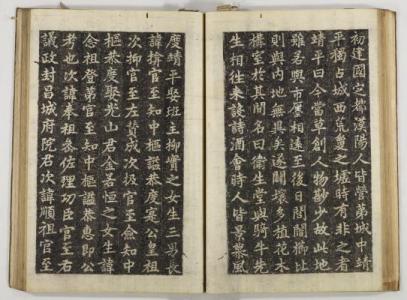 初建國定都漢陽人皆營第城中靖
平獨占城西荒蔓之墟時有非之者
靖平曰今當草創人物尠少故此地
雖若與市廛相遠至後日閭閻櫛比
則與内地無異矣遂闢壤多植花木
構室於其間名曰衛生堂與騎牛先
生相徃来談詩酒會時人皆景慕風
度靖平娶班主柳實之女生三男長
諱揜官至知中樞謚恭度寔公皇祖
次抑官至左贊成次扱官至僉知中
樞恭度娶光山君金若恒之女生諱
念祖登第官至知中樞謚恭惠即公
考也次諱奉祖參佐理功臣官至右
議政封昌城府院君次諱順祖官至